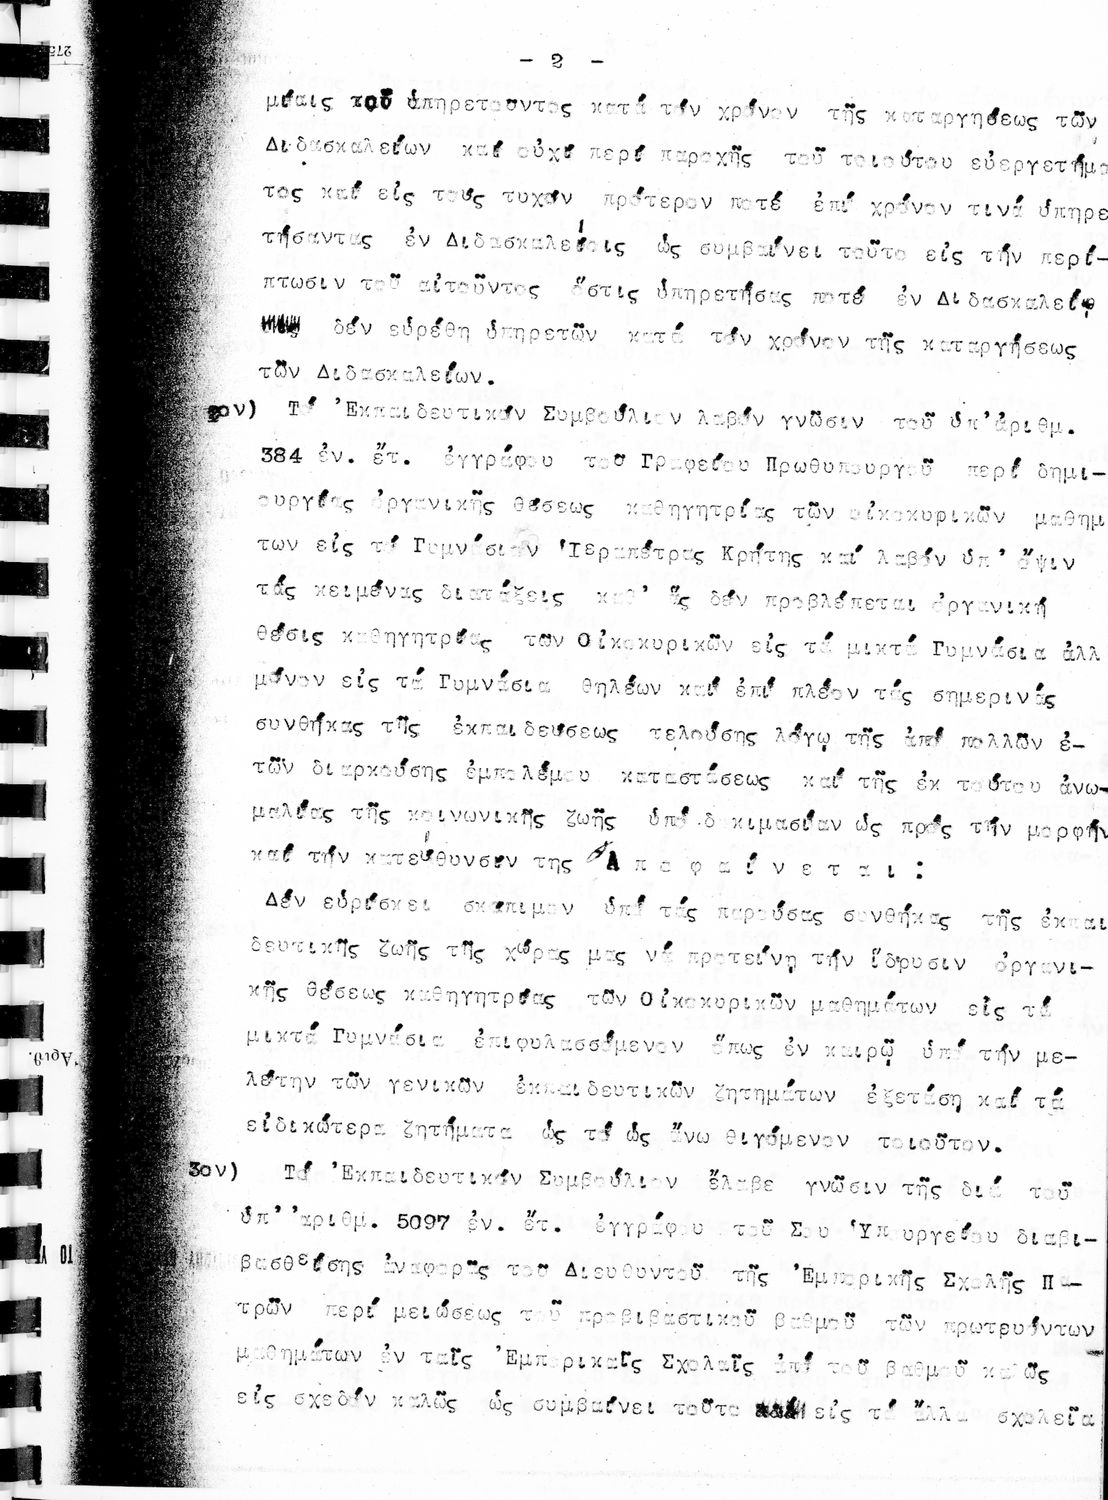 - 2 -
μίαις τοῦ ὑπηρετοῦντος κατά τόν χρόνον τῆς καταργήσεως τῶν
Διδασκαλείων καί οὐχί περί παροχῆς τοῦ τοιούτου εὐεργετήμα
τος καί εἰς τους τυχόν πρότερον ποτέ ἐπί χρόνον τινά ὑπηρε
τήσαντας ἐν Διδασκαλείοις ὡς συμβαίνει τοῦτο εἰς τήν περί-
πτωσιν τοῦ αἰτοῦντος ὅστις ὑπηρετήσας ποτέ ἐν Διδασκαλείῳ
δέν εὑρέθη ὑπηρετῶν κατά τόν χρόνον τῆς καταργήσεως
τῶν Διδασκαλείων.
2ον) Τό Ἐκπαιδευτικόν Συμβούλιον λαβόν γνῶσιν τοῦ ὑπ'ἀριθμ.
384 ἐν. ἔτ. ἐγγράφου τοῦ Γραφείου Πρωθυπουργοῦ περί δημι-
ουργίας ὀργανικῆς θέσεως καθηγητρίας τῶν οἰκοκυρικῶν μαθημ
των εἰς τό Γυμνάσιον Ἱεραπέτρας Κρήτης καί λαβόν ὑπ' ὄψιν
τάς κειμένας διατάξεις καθ' ἅς δέν προβλέπεται ὀργανική
θέσις καθηγητρίας τῶν Οἰκοκυρικῶν εἰς τά μικτά Γυμνάσια ἀλλ
μόνον εἰς τά Γυμνάσια θηλέων καί ἐπί πλέον τάς σημερινάς
συνθήκας τῆς ἐκπαιδεύσεως τελούσης λόγῳ τῆς ἀπό πολλῶν ἐ-
τῶν διαρκούσης ἐμπολέμου καταστάσεως καί τῆς ἐκ τούτου ἀνω-
μαλίας τῆς κοινωνικῆς ζωῆς ὑπό δοκιμασίαν ὡς πρός τήν μορφήν
καί τήν κατεύθυνσιν της Ἀ π ο φ α ί ν ε τ α ι :
Δέν εὑρίσκει σκόπιμον ὑπό τάς παρούσας συνθήκας τῆς ἐκπαι
δευτικῆς ζωῆς τῆς χώρας μας νά προτείνῃ τήν ἵδρυσιν ὀργανι-
κῆς θέσεως καθηγητρίας τῶν Οἰκοκυρικῶν μαθημάτων εἰς τά
μικτά Γυμνάσια ἐπιφυλασσόμενον ὅπως ἐν καιρῷ ὑπό τήν με-
λέτην τῶν γενικῶν ἐκπαιδευτικῶν ζητημάτων ἐξετάσῃ καί τά
εἰδικώτερα ζητήματα ὡς τό ὡς ἄνω θιγόμενον τοιοῦτον.
3ον) Τό Ἐκπαιδευτικόν Συμβούλιον ἔλαβε γνῶσιν τῆς διά τοῦ
ὑπ' ἀριθμ. 5097 ἐν. ἔτ. ἐγγράφου τοῦ Σου Ὑπουργείου διαβι-
βασθείσης ἀναφορᾶς τοῦ Διευθυντοῦ τῆς Ἐμπορικῆς Σχολῆς Πα-
τρῶν περί μειώσεως τοῦ προβιβαστικοῦ βαθμοῦ τῶν πρωτευόντων
μαθημάτων ἐν ταῖς Ἐμπορικαῖς Σχολαῖς ἀπό τοῦ βαθμοῦ καλῶς
εἰς σχεδόν καλῶς ὡς συμβαίνει τοῦτο εἰς τά ἄλλα σχολεῖα